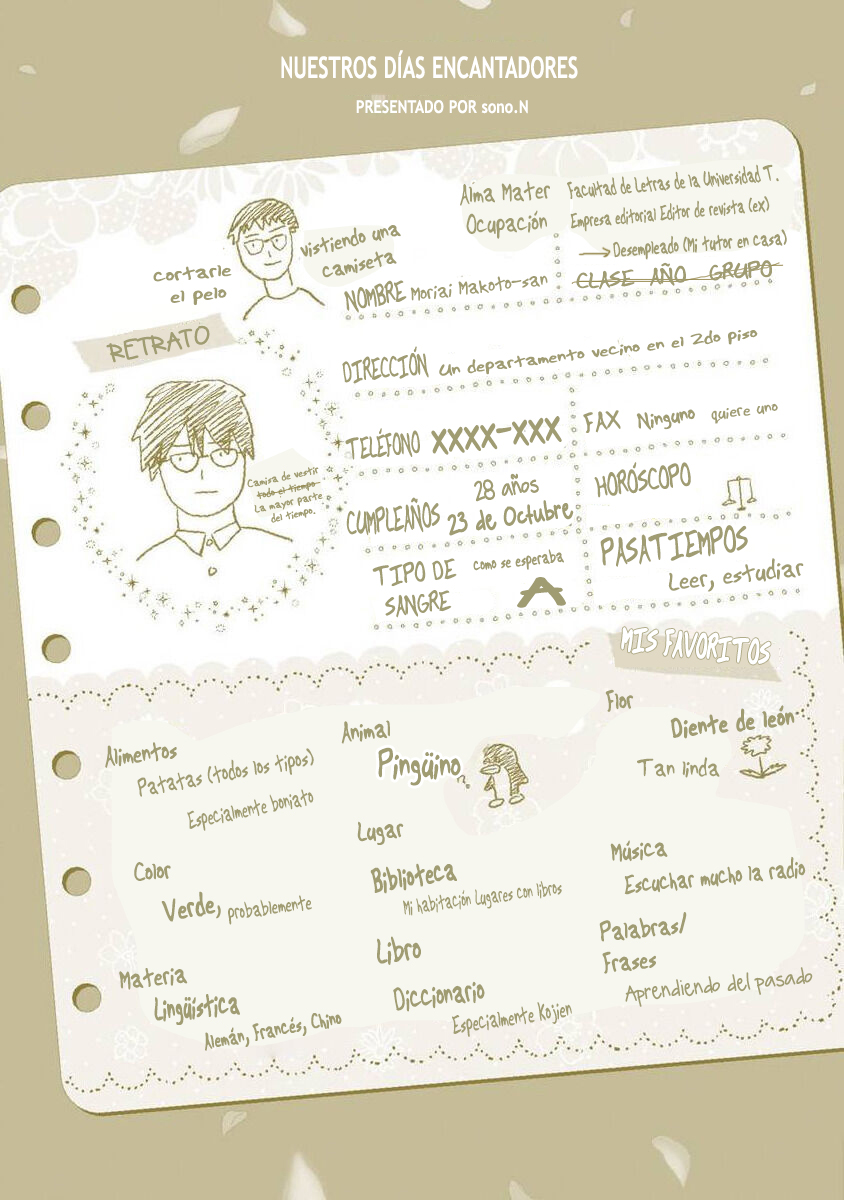 NUESTROS DÍAS ENCANTADORES
PRESENTADO POR sono.N
cortarle
el pelo
vistiendo una
camiseta
Alma Mater
Ocupación
Facultad de Letras de la Universidad T.
Empresa editorial Editor de revista (ex)
→ Desempleado (Mi tutor en casa)
NOMBRE Moriai Makoto-san
CLASE AÑO GRUPO
RETRATO
Camisa de vestir
todo el tiempo
La mayor parte
del tiempo.
DIRECCIÓN Un departamento vecino en el 2do piso
TELÉFONO XXXX-XXX
FAX Ninguno quiere uno
CUMPLEAÑOS 28 años
23 de Octubre
HORÓSCOPO
TIPO DE
SANGRE
Como se esperaba
A
PASATIEMPOS
Leer, estudiar
MIS FAVORITOS
Alimentos
Patatas (todos los tipos)
Especialmente boniato
Animal
Pingüino?
Flor
Diente de león
Tan linda
Color
Verde, probablemente
Lugar
Biblioteca
Mi habitación Lugares con libros
Música
Escuchar mucho la radio
Materia
Lingüística
Alemán, Francés, Chino
Libro
Diccionario
Especialmente Kojien
Palabras/
Frases
Aprendiendo del pasado